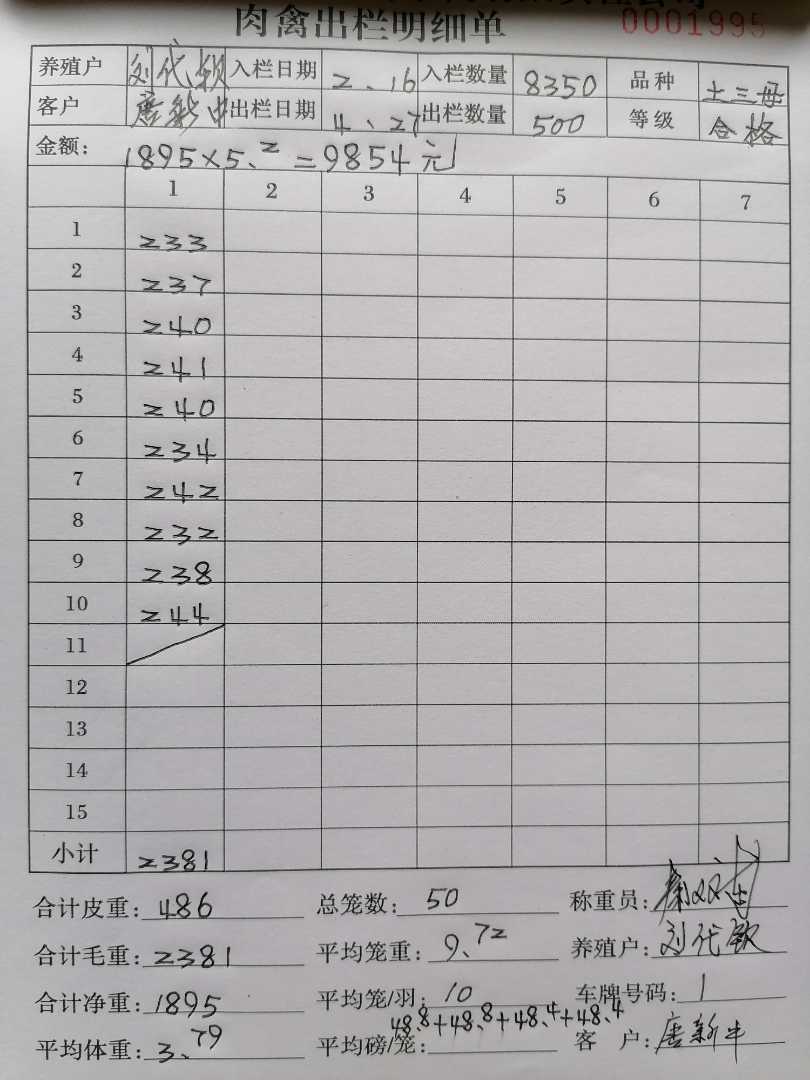 肉禽出栏明细单 0001995
养殖户 刘代钦 入栏日期 2、16 入栏数量 8350 品种 土三母
客户 唐新中 出栏日期 4、27 出栏数量 500 等级 合格
金额: 1895×5、2=9854元
1 2 3 4 5 6 7
1 233
2 237
3 240
4 241
5 240
6 234
7 242
8 232
9 238
10 244
11
12
13
14
15
小计 2381
合计皮重: 486 总笼数: 50 称重员:
合计毛重: 2381 平均笼重: 9、72 养殖户: 刘代钦
合计净重: 1895 平均笼/羽: 10 车牌号码: 1
48、8+48、8+48、4+48、4
平均体重: 3、79 平均磅/笼: 客户: 唐新牛